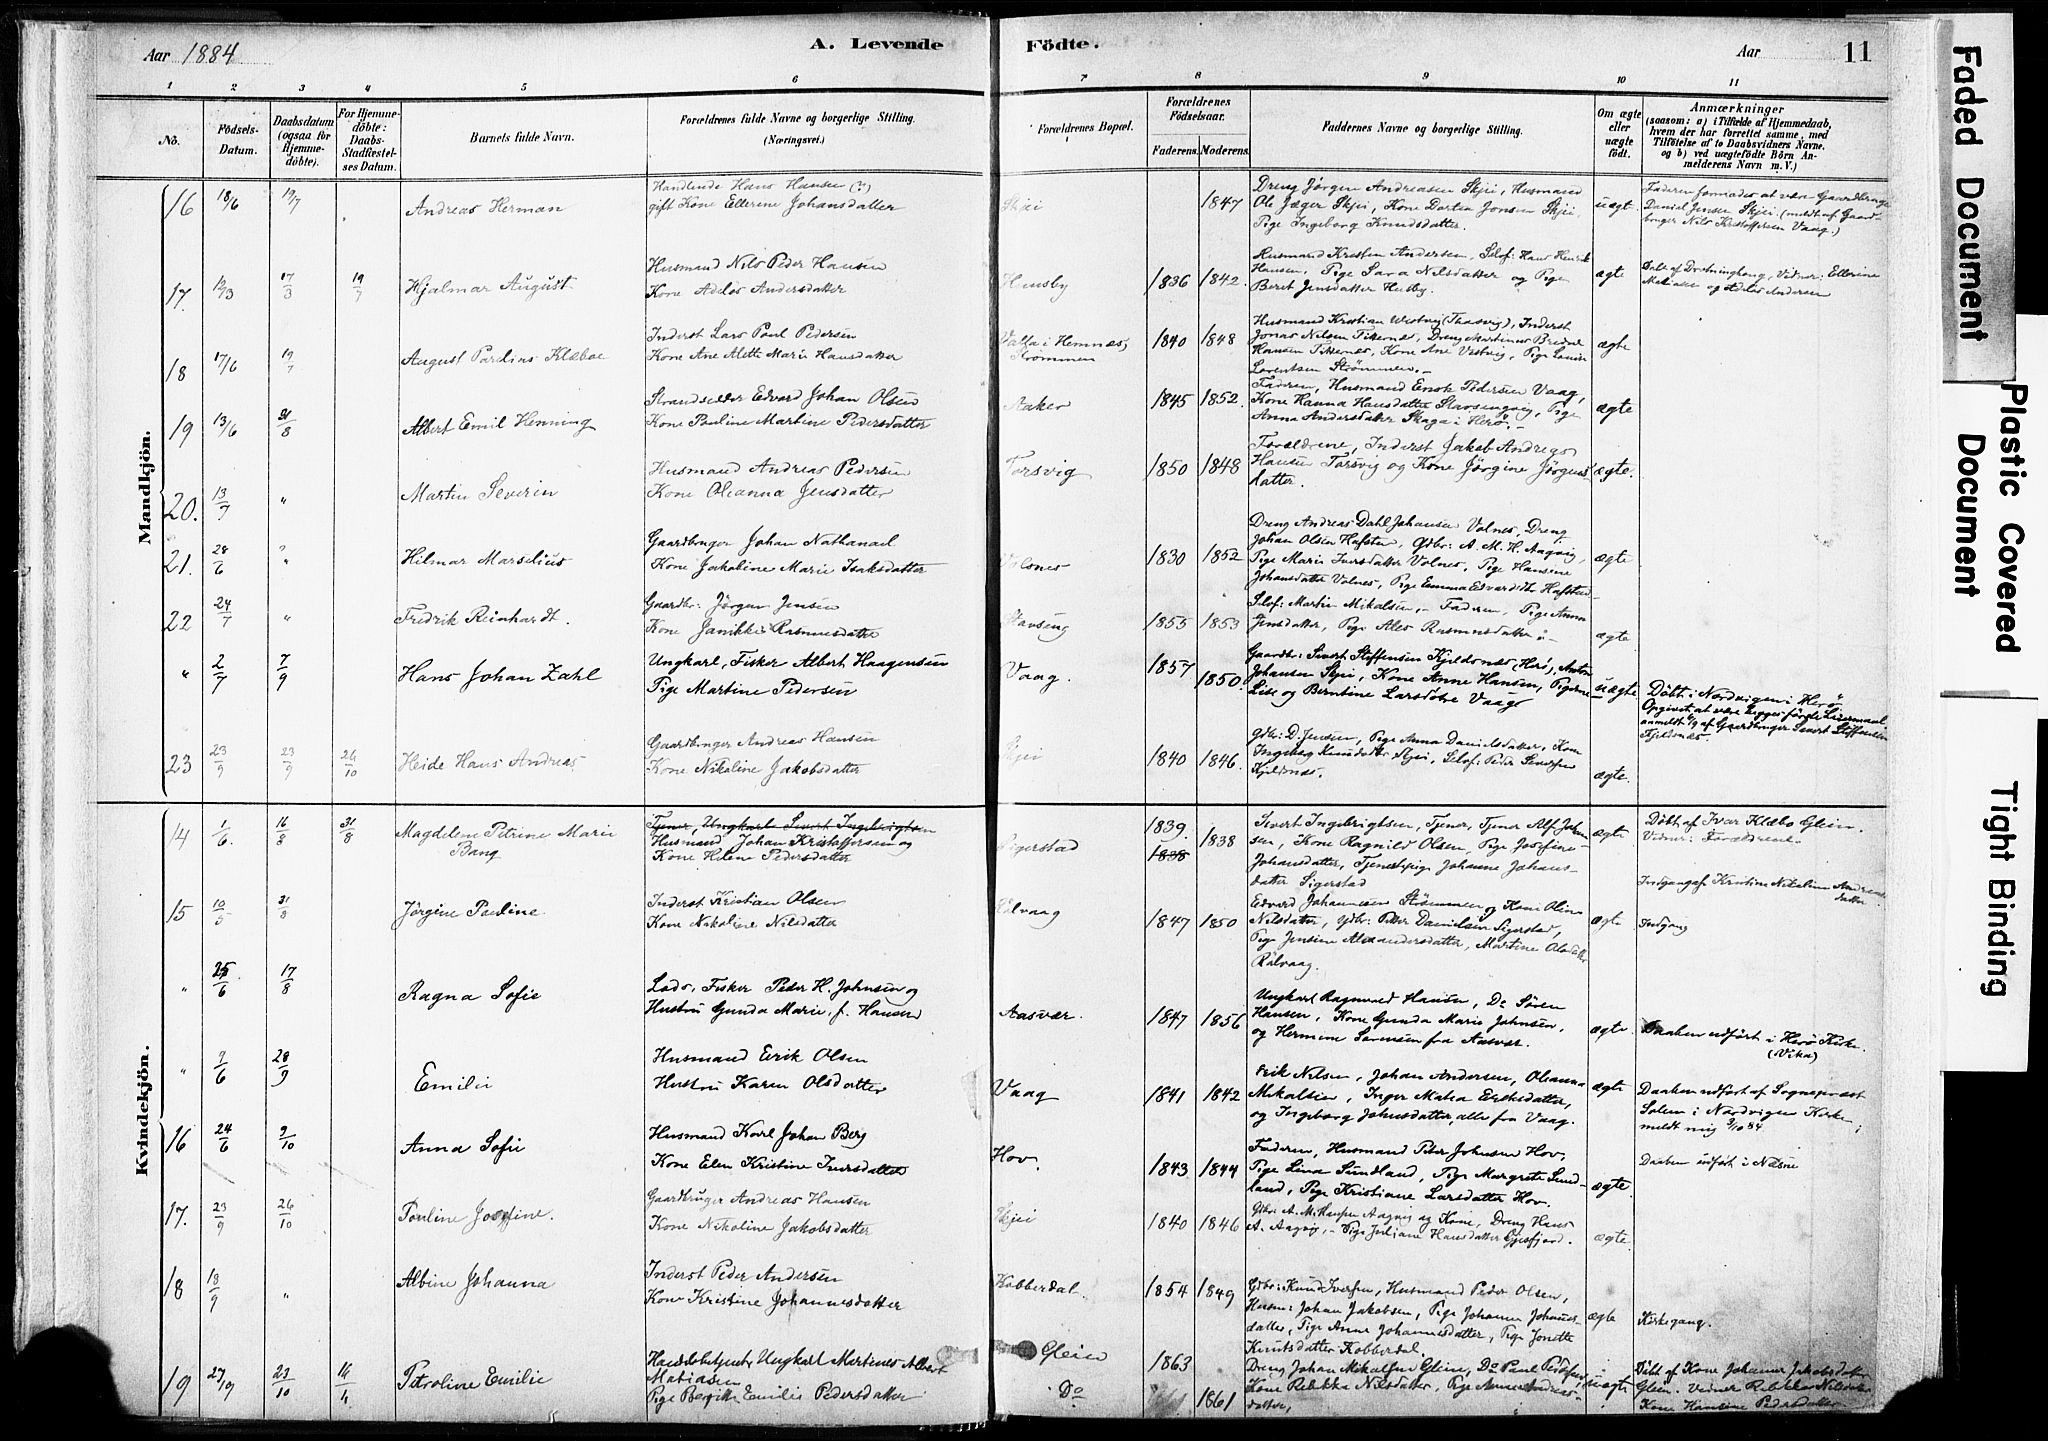 Aar 1884
A. Levende
Födte.
Aar
11
1 2 3 4 5 6 7 8 9 10 11
No.
Födsels-Datum.
Daabsdatum (ogsaa for Hjemme-döbte).
For Hjemme-döbte: Daabs-Stadfæstel-ses Datum.
Barnets fulde Navn.
Forældrenes fulde Navne og borgerlige Stilling. (Næringsvei.)
Forældrenes Bopæl.
Forældrenes Födselsaar.
Faderens. Moderens.
Faddernes Navne og borgerlige Stilling.
Om ægte eller uægte födt.
Anmærkninger
(saasom: a) i Tilfælde af Hjemmedaab, hvem der har forrettet samme, med Tilföielse af to Daabsvidners Navne, og b) ved uægtefödte Börn Anmelderens Navn m. V.)
Mandkjön.
16 18/6 19/7 Andreas Herman
Handlende Hans Hansen (?)
gift Kone Ellerine Johansdatter
Skjei 1847
Dreng Jörgen Andreasen Skjei, Husmand
Ole Jæger Skjei, Kone Dortea Jonsen Skjei,
Pige Ingeborg Knudsdatter.
uægt.
Faderen formodes at være Gaardbruger
Daniel Jensen Skjei. (meldt af Gaard-
bruger Nils Kristoffersen Vaag.)
17. 12/3 17/3 19/7 Hjalmar August
Husmand Nils Peder Hansen
Kone Adelös Andersdatter
Huusby 1836 1842.
Husmand Kristen Andersen, Selof: Hans Henrik
Hansen, Pige Sara Nilsdatter og Pige
Beret Jensdatter Husby.
ægte
18 17/6 19/7 August Parelius Klæboe
Inderst Lars Paul Pedersen
Kone Ane Alette Marie Hansdatter
Valla i Hemnæs, Strömmen 1840 1848
ægte
19 13/6 31/8 Albert Emil Henning
Strandsidder Edvard Johan Olsen
Kone Pauline Martine Pedersdatter
Aaker 1845 1852.
Faderen, Husmand Enok Pedersen Vaag,
Kone Hanna Hansdatter Stavsengvig, Pige
Anna Andersdatter Skaga i Herö.
ægte
20. 13/7 " Martin Severin
Husmand Andreas Pedersen
Kone Oleanna Jensdatter
Torsvig 1850 1848
Forældrene, Inderst Jakob Andreas
Hansen Torsvig og Kone Jörgine Jörgens-
datter.
ægte.
21. 28/6 " Hilmar Marselius
Gaardbruger Johan Nathanael
Kone Jakobine Marie Isaksdatter
Volsnes 1830 1852
Dreng Andreas Dahl Johansen Volnes, Dreng
Johan Olsen Hafsten, Gdbr: A. M. H. Aagvig,
Pige Marie Iversdatter Volnes, Pige Hansine
Johansdatter Volnes, Pige Emma Edvardsdtr Hafsten
ægte
22 24/7 " Fredrik Reinhardt.
Gaardbr: Jörgen Jensen
Kone Janikke Rasmusdatter
Stavseng 1855 1853
Selof: Martin Mikalsen, Faderen, Pige Anna
Jensdatter, Pige Ales Rasmusdatter
ægte
" 2/7 7/9 Hans Johan Zahl
Ungkarl, Fisker Albert Haagensen
Pige Martine Pedersen
Vaag. 1857 1850.
Gaardbr: Sivert Steffensen Kjeldsnæs (Herö), Anton
Johansen Skjei, Kone Anne Hansen, Pigerne
Lise og Berntine Larsdötre Vaag
uægte
Döbt i Nordvigen i Herö
Opgivet at være begges förste Leiermaal
anmeldt 6/9 af Gaardbruger Sivert Steffensen
Kjeldsnæs.
23 23/9 23/9 26/10 Heide Hans Andreas
Gaardbruger Andreas Hansen
Kone Nikoline Jakobsdatter
Skjei 1840 1846.
Gdbr: D. Jensen, Pige Anna Danielsdatter, Kone
Ingeborg Knudsdatter Skjei, Selof: Peder Seversen
Kjeldsnæs.
ægte.
Kvindekjön.
14 1/6. 16/8 31/8 Magdelene Petrine Marie Bang
Tjener, Ungkarl Sivert Ingebrigtsen
Husmand Johan Kristoffersen og
Kone Helene Pedersdatter
Sigerstad 1839. 1838 1838
Sivert Ingebrigtsen, Tjener, Tjener Alf Johan-
sen, Kone Ragnild Olsen, Pige Josefine
Johansdatter, Tjenestepige Johanne Johans-
datter Sigerstad
ægte
Döbt af Ivar Klæbo Glein.
Vidner: Forældrene
Indgang af Kristine Nikoline Andreas-
datter
15 10/5 31/8 Jörgine Pauline
Inderst Kristian Olsen
Kone Nikoline Nilsdatter
Rölvaag 1847 1850
Edvard Johannesen Strömmen og Kone Oline
Nilsdatter, Gdbr: Peter Danielsen Sigerstad,
Pige Jensine Alexandersdatter, Martine Olsdatter
Rölvaag.
ægte
Indgang
" 25/6 17/8 Ragna Sofie
Lods, Fisker Peder H. Johnsen og
Hustru Gunda Marie, f. Hansen
Aasvær. 1847 1856
Ungkarl Ragnvald Hansen, Do Sören
Hansen, Kone Gunda Marie Johnsen,
og Hermine Sörensen fra Aasvær.
ægte.
Daaben udfört i Herö Kirke.
(Vika)
" 9/6 28/9 Emilie
Husmand Eirik Olsen
Hustru Karen Olsdatter
Vaag 1841 1842
Erik Nilsen, Johan Andersen, Oleanna
Mikalsen, Inger Maria Eriksdatter,
og Ingeborg Johnsdatter, alle fra Vaag.
ægte
Daaben udfört af Sogneprest
Solem i Nordvigen Kirke;
meldt mig 9/10 84
16 24/6 9/10 Anna Sofie
Husmand Karl Johan Berg
Kone Elen Kristine Iversdatter
Hov. 1843 1844
Faderen, Husmand Peter Johnsen Hov,
Pige Lina Sundland, Pige Margrete Sund-
land, Pige Kristiane Larsdatter Hov.
ægte.
Daaben udfört i Næsne
17. 23/9 26/10 Pauline Josefine.
Gaardbruger Andreas Hansen
Kone Nikoline Jakobsdatter
Skjei 1840 1846
Gdbr: A. M. Hansen Aagvig og Kone, Dreng Hans
A. Aagvig, Pige Juliane Hansdatter
ægte.
18 13/9 " Albine Johanna
Inderst Peder Andersen
Kone Kristine Johannesdatter
Kobberdal. 1854 1849
Gdbr: Knud Iversen, Husmand Peder Olsen,
Husm: Johan Jakobsen, Pige Johanna Johannes-
datter, Pige Anne Johannesdatter, Pige Jonette
Knutsdatter Kobberdal.
ægte
Kirkegang.
19 27/9 23/10 Petroline Emilie
Handelsbetjent, Ungkarl Martines Albert
Matiasen
Pige Bergitte Emilie Pedersdatter
Glein Do 1863 1861
Dreng Johan Mikalsen Glein, Do Paul Pedersen
Kone Rebekka Nilsdatter, Pige Anne Andreas-
datter,
uægt.
Döbt af Kone Johanna Jakobsdatter
Glein. Vidner Rebekka Nilsdatter
Kone Hansine Pedersdatter
Faded Document
Plastic Covered Document
Tight Binding